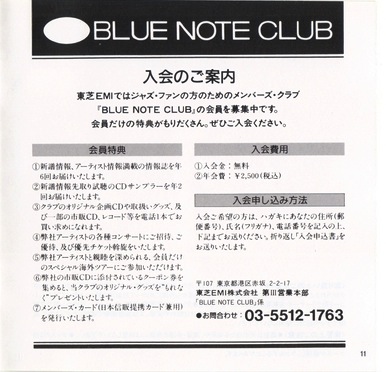 BLUE NOTE CLUB
入会のご案内
東芝EMIではジャズ・ファンの方のためのメンバーズ・クラブ
「BLUE NOTE CLUB」の会員を募集中です。
会員だけの特典がもりだくさん。ぜひご入会ください。
会員特典
①新譜情報、アーティスト情報満載の情報誌を年
6回お届けいたします。
②新譜情報先取り試聴のCDサンプラーを年2
回お届けいたします。
③クラブのオリジナル企画CDや取扱いグッズ、及
び一部の市販CD、レコード等を電話1本でお
買い求めになれます。
④弊社アーティストの各種コンサートにご招待、ご
優待、及び優先チケット斡旋をいたします。
⑤弊社アーティストと親睦を深められる、会員だけ
のスペシャル海外ツアーにご参加いただけます。
⑥弊社の市販CDに添付されているクーポン券を
集めると、当クラブのオリジナル・グッズを"もれな
く"プレゼントいたします。
⑦メンバーズ・カード(日本信販提携カード兼用)
を発行いたします。
入会費用
①入会金：無料
②年会費：¥2,500(税込)
入会申し込み方法
入会ご希望の方は、ハガキにあなたの住所(郵
便番号)、氏名(フリガナ)、電話番号を記入の上、
下記までお送りください。折り返し「入会申込書」を
お送りいたします。
〒107 東京都港区赤坂 2-2-17
東芝EMI株式会社 第III営業本部
「BLUE NOTE CLUB」係
●お問合わせ：03-5512-1763
11